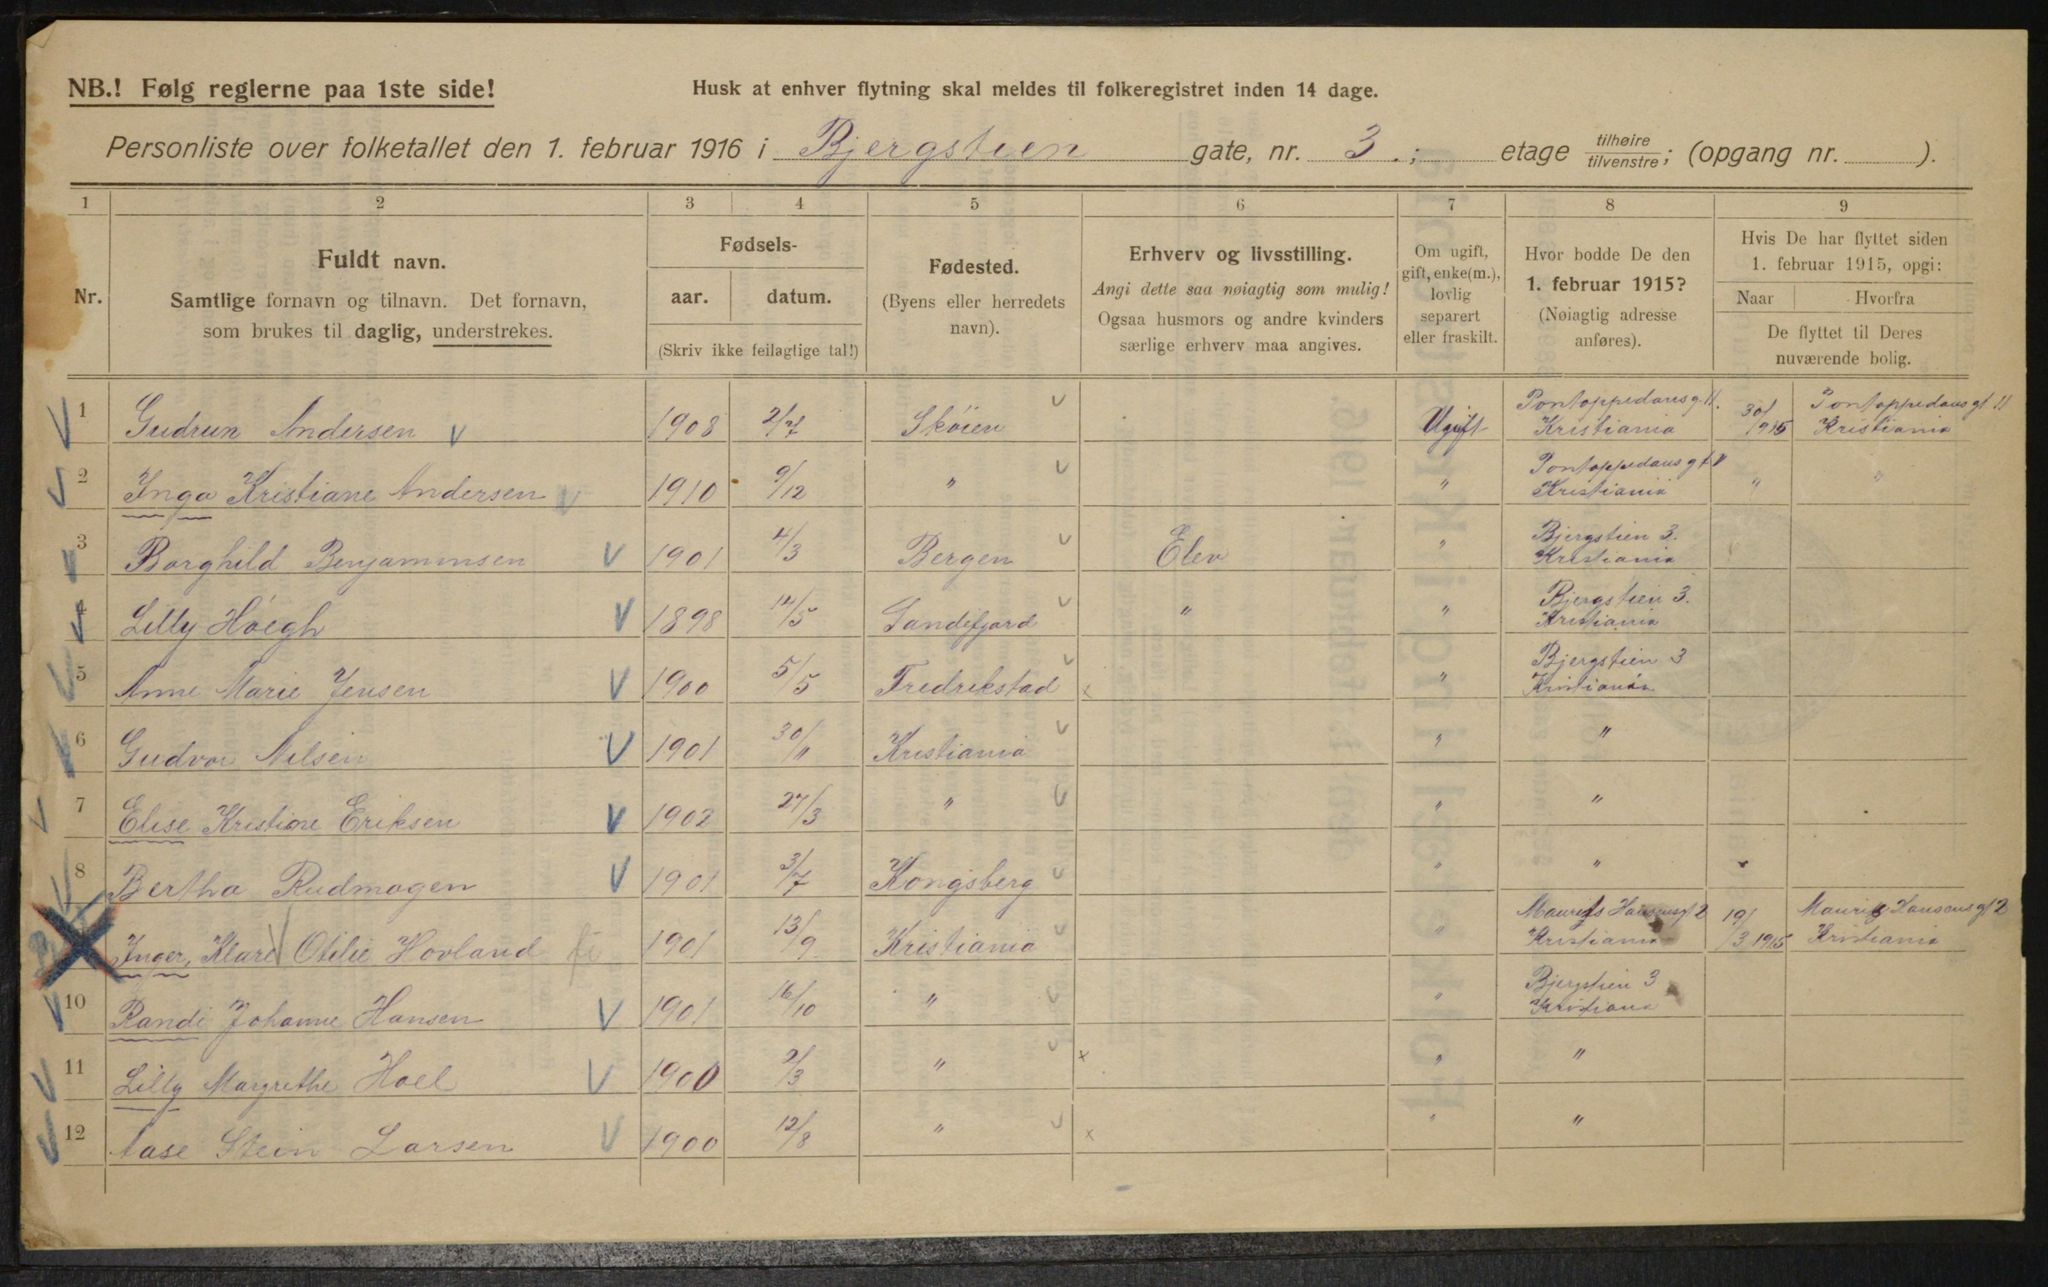 NB.! Følg reglerne paa 1ste side!
Husk at enhver flytning skal meldes til folkeregistret inden 14 dage.
Personliste over folketallet den 1. februar 1916 i Bjergstien gate, nr. 3 . ; etage tilhøire/tilvenstre; (opgang nr. ).
1 2 3 4 5 6 7 8 9
Nr.
Fuldt navn.
Samtlige fornavn og tilnavn. Det fornavn,
som brukes til daglig, understrekes.
Fødsels-
aar. datum.
(Skriv ikke feilagtige tal!)
Fødested.
(Byens eller herredets
navn).
Erhverv og livsstilling.
Angi dette saa nøiagtig som mulig!
Ogsaa husmors og andre kvinders
særlige erhverv maa angives.
Om ugift,
gift, enke(m.),
lovlig
separert
eller fraskilt.
Hvor bodde De den
1. februar 1915?
(Nøiagtig adresse
anføres).
Hvis De har flyttet siden
1. februar 1915, opgi:
Naar Hvorfra
De flyttet til Deres
nuværende bolig.
1 Gudrun Andersen 1908 2/7 Sköien Ugift Pontoppedansg. 11. Kristiania 30/ 1915 Pontoppedansgt 11 Kristiania
2 Inga Kristiane Andersen 1910 9/12 " " Pontoppedansgt 11 Kristiania " "
3 Borghild Benjaminsen 1901 4/3 Bergen Elev " Bjergstien 3. Kristiania
4 Lilly Höegh 1898 12/5 Sandefjord " " Bjergstien 3. Kristiania
5 Anne Marie Jensen 1900 5/5 Fredrikstad x " Bjergstien 3 Kristiania
6 Gudvor Nilsen 1901 30/11 Kristiania " "
7 Elise Kristine Eriksen 1902 27/3 " " "
8 Bertha Rudmogen 1901 3/7 Kongsberg " "
Inger, Klara Otilie Hovland 1901 13/9 Kristiania " Mauritz Hansensgt 2 Kristiania 19/3 1915 Mauritz Hansensgt 2 Kristiania
10 Randi Johanne Hansen 1901 16/10 " " Bjergstien 3 Kristiania
11 Lilly Margrethe Hoel 1900 2/3 " x " "
12 Aase Stein Larsen 1900 12/8 " x " "